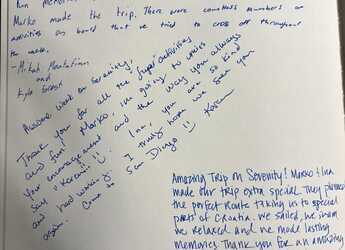 fun memories
Marko made the trip. There were countless numbers on
activities on board that we tried to cross off throughout
the week.
Kyle
Awesome week on Serenity!
Thank you for all the super activities
and fun! Marko, I'm going to miss
your encouragement and the way you always
say "Karen!"
Ina, you are so kind
and hard working. I truly hope we see you
again. Come to San Diego!
Karen
Amazing Trip on Serenity! Marko & Ina
made our trip extra special. They planned
the perfect route taking us to special
parts of Croatia. We sailed, we swam
we relaxed and we made lasting
memories. Thank you for an amazing